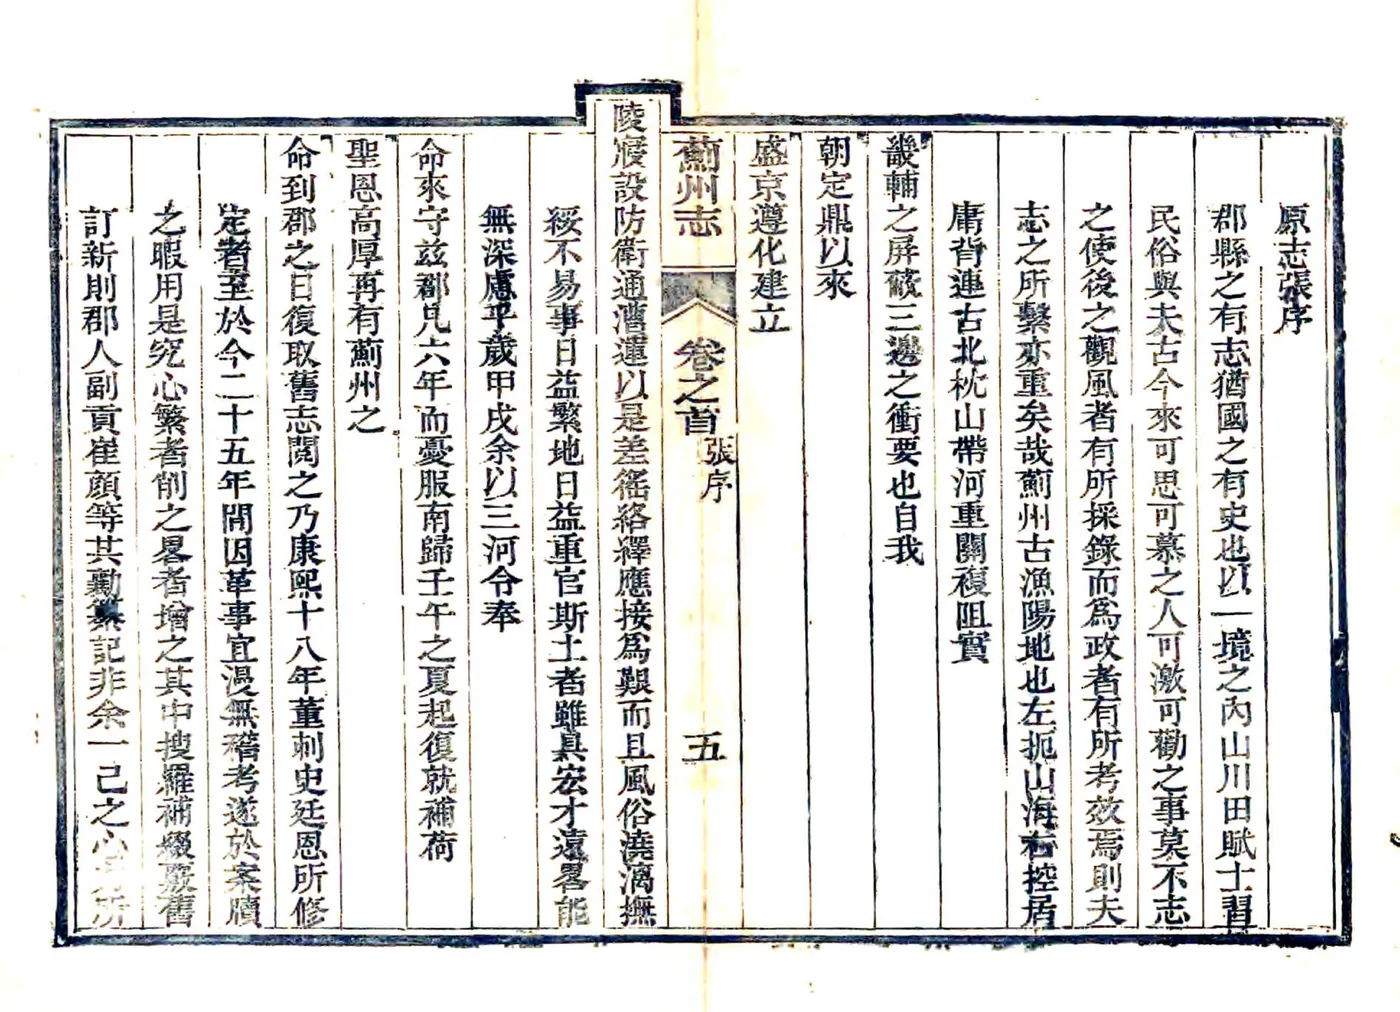 原志張序
郡縣之有志猶國之有史也以一境之內山川田賦士習
民俗與夫古今來可思可慕之人可激可勸之事莫不志
之使後之觀風者有所採錄而為政者有所考效焉則夫
志之所繫亦重矣哉薊州古漁陽地也左扼山海右控居
庸背連古北枕山帶河重關複阻實
畿輔之屏蔽三邊之衝要也自我
朝定鼎以來
盛京遵化建立
薊州志
卷之首
張序
五
陵寢設防衛通漕運以是差徭絡繹應接為艱而且風俗澆漓撫
綏不易事日益繁地日益重官斯土者雖具宏才遠畧能
無深慮乎歲甲戌余以三河令奉
命來守茲郡凡六年而憂服南歸壬午之夏起復就補荷
聖恩高厚再有薊州之
命到郡之日復取舊志閱之乃康熙十八年董刺史廷恩所修
定者至於今二十五年間因革事宜漫無稽考遂於案牘
之暇用是究心繁者削之畧者增之其中搜羅補綴覈舊
訂新則郡人副貢崔顔等其勷纂記非余一己之心 所